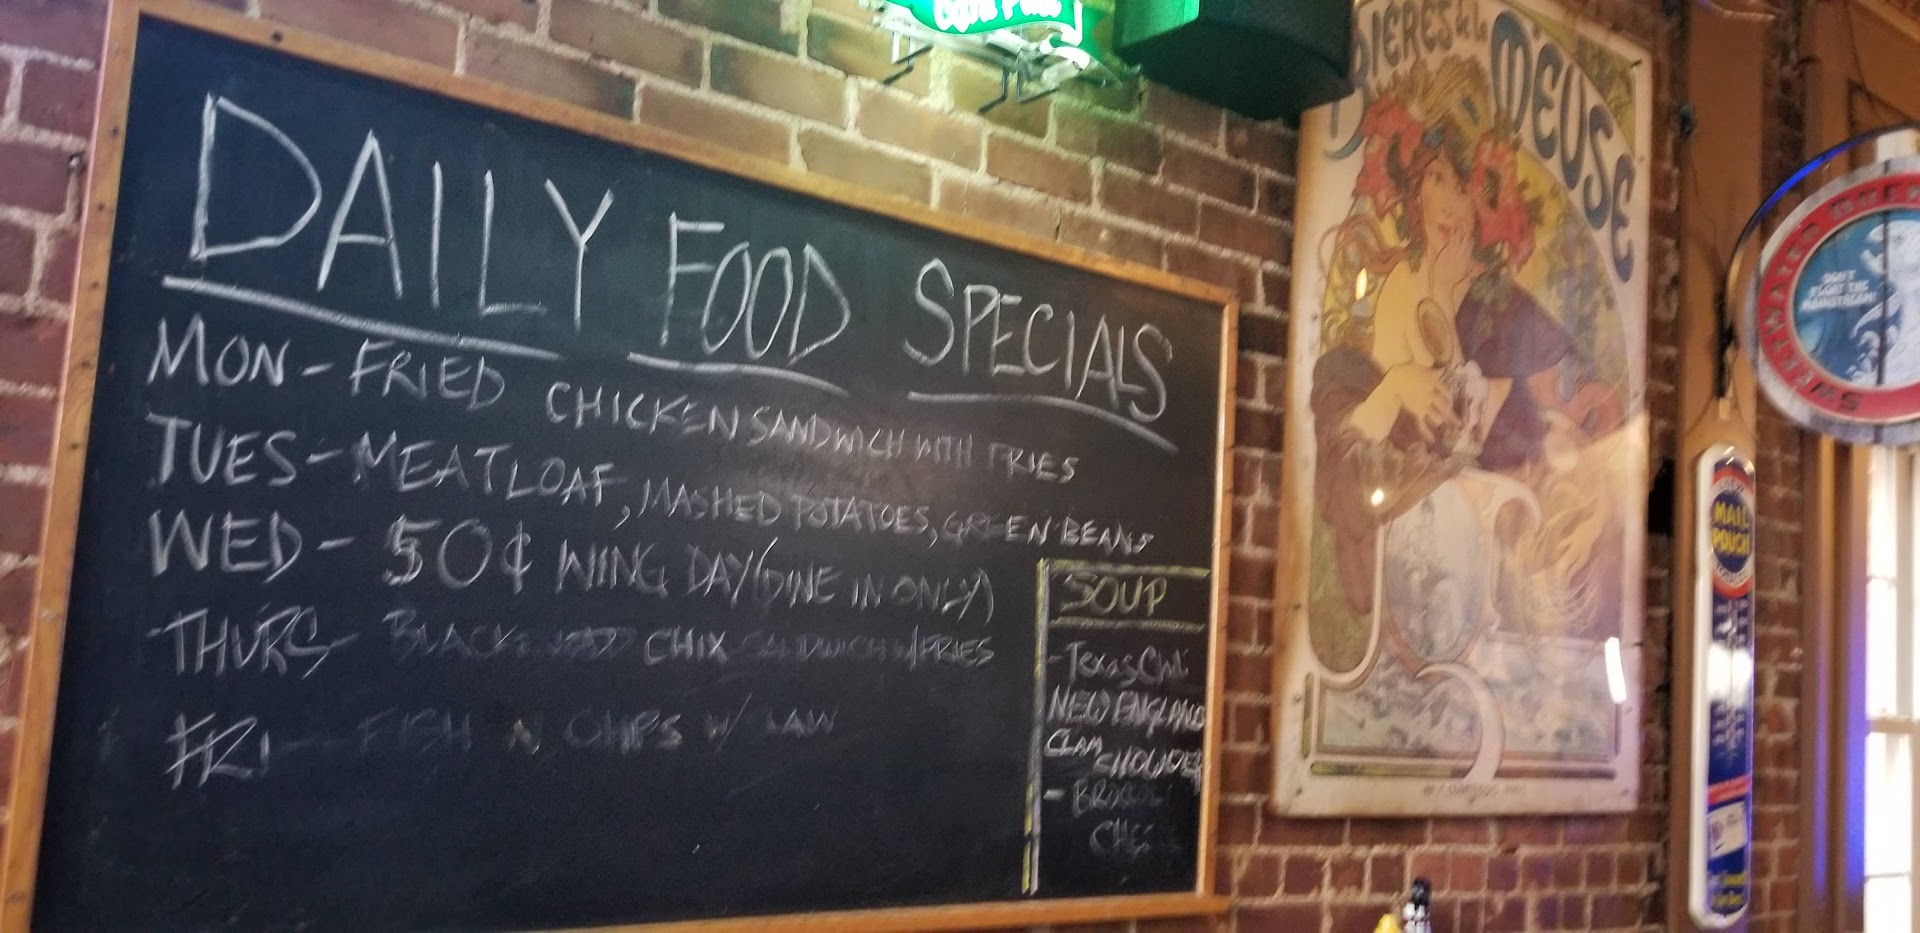 DAILY FOOD SPECIALS
MON - FRIED CHICKEN SANDWICH WITH FRIES
TUES - MEATLOAF, MASHED POTATOES, GREEN BEANS
WED - 50¢ WING DAY (DINE IN ONLY)
THURS - BLACKENED CHIX SANDWICH W/FRIES
FRI - FISH N CHIPS W/ SLAW
SOUP
- Texas Chili
NEW ENGLAND
CLAM
CHOWDER
- BROCCOLI
BIERES de la
MEUSE
DON'T
FLOAT THE
MAINSTREAM!
SWEETWATER
MAIL
POUCH